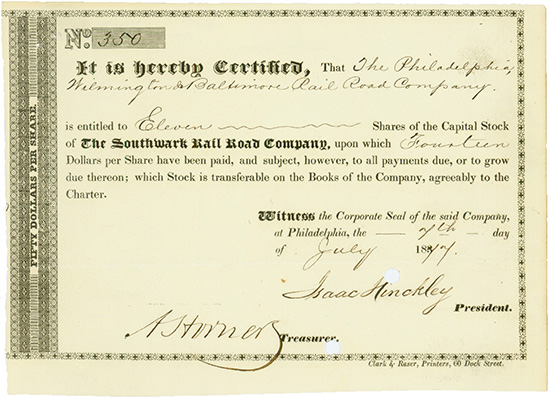 No. 350
It is hereby Certified, That The Philadelphia,
Wilmington & Baltimore Rail Road Company.
is entitled to Eleven Shares of the Capital Stock
of The Southwark Rail Road Company, upon which Fourteen
Dollars per Share have been paid, and subject, however, to all payments due, or to grow
due thereon; which Stock is transferable on the Books of the Company, agreeably to the
Charter.
Witness the Corporate Seal of the said Company,
at Philadelphia, the 7th day
of July
Isaac Hinckley
President.
A Horner
Treasurer.
Clark & Raser, Printers, 60 Dock Street.
FIFTY DOLLARS PER SHARE.